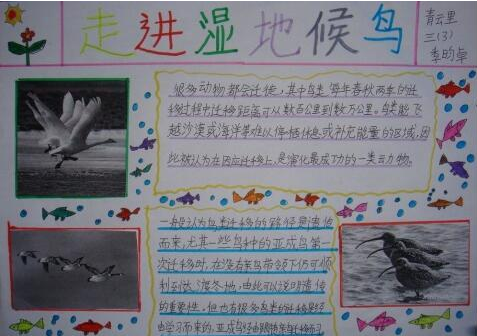 走进湿地候鸟
青云里
三(3)
季昀卓
很多动物都会迁徙，其中鸟类每年春秋两季的迁
移过程中迁移距离可以数百公里到数万公里。鸟类能飞
越沙漠或海洋等难以停栖休息或补充能量的区域，因
此被认为在因应迁移上，是演化最成功的一类云力物。
一般认为鸟类迁移的路径是遗传
而来，尤其一些鸟种的亚成鸟第一
次迁移时，在没有亲鸟带领下仍可顺
利到达渡冬地，由此可以说明遗传
的重要性。但也有很多鸟类的迁移是经
由学习而来的，亚成鸟经由跟随亲鸟迁移而习